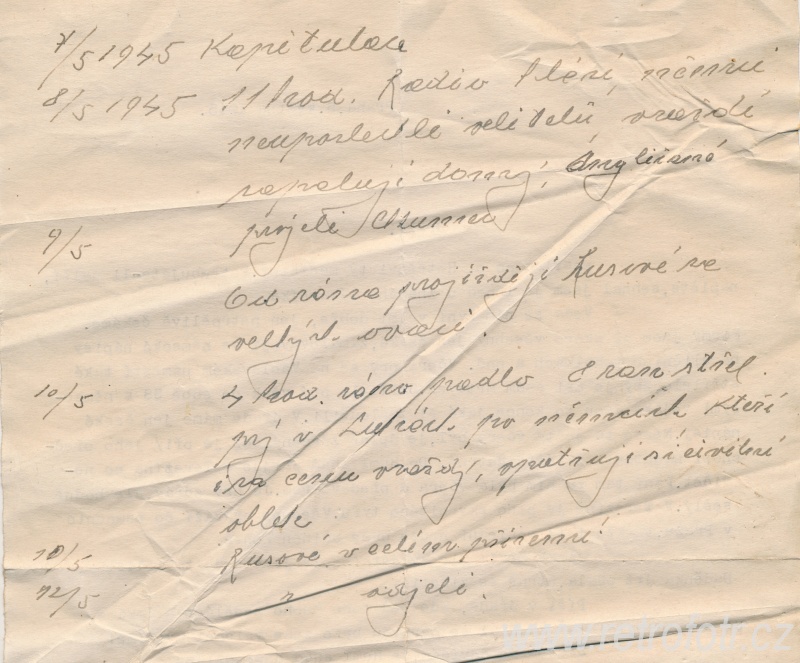 7/5 1945 Kapitulace
8/5 1945 11 hod. Radio hlásí, němci
neuposlechli velitelů, vraždí
zapalují domy, Angličané
9/5 projeli
Od rána projíždějí Rusové za
velkých ovací.
10/5 4 hod. ráno padlo 8 ran střel.
prý v Lukách po němcích kteří
i za cenu vraždy, opatřují si civilní
oblek
10/5 Rusové v celém přízemí
12/5 " odjeli.
www.retrofotr.cz